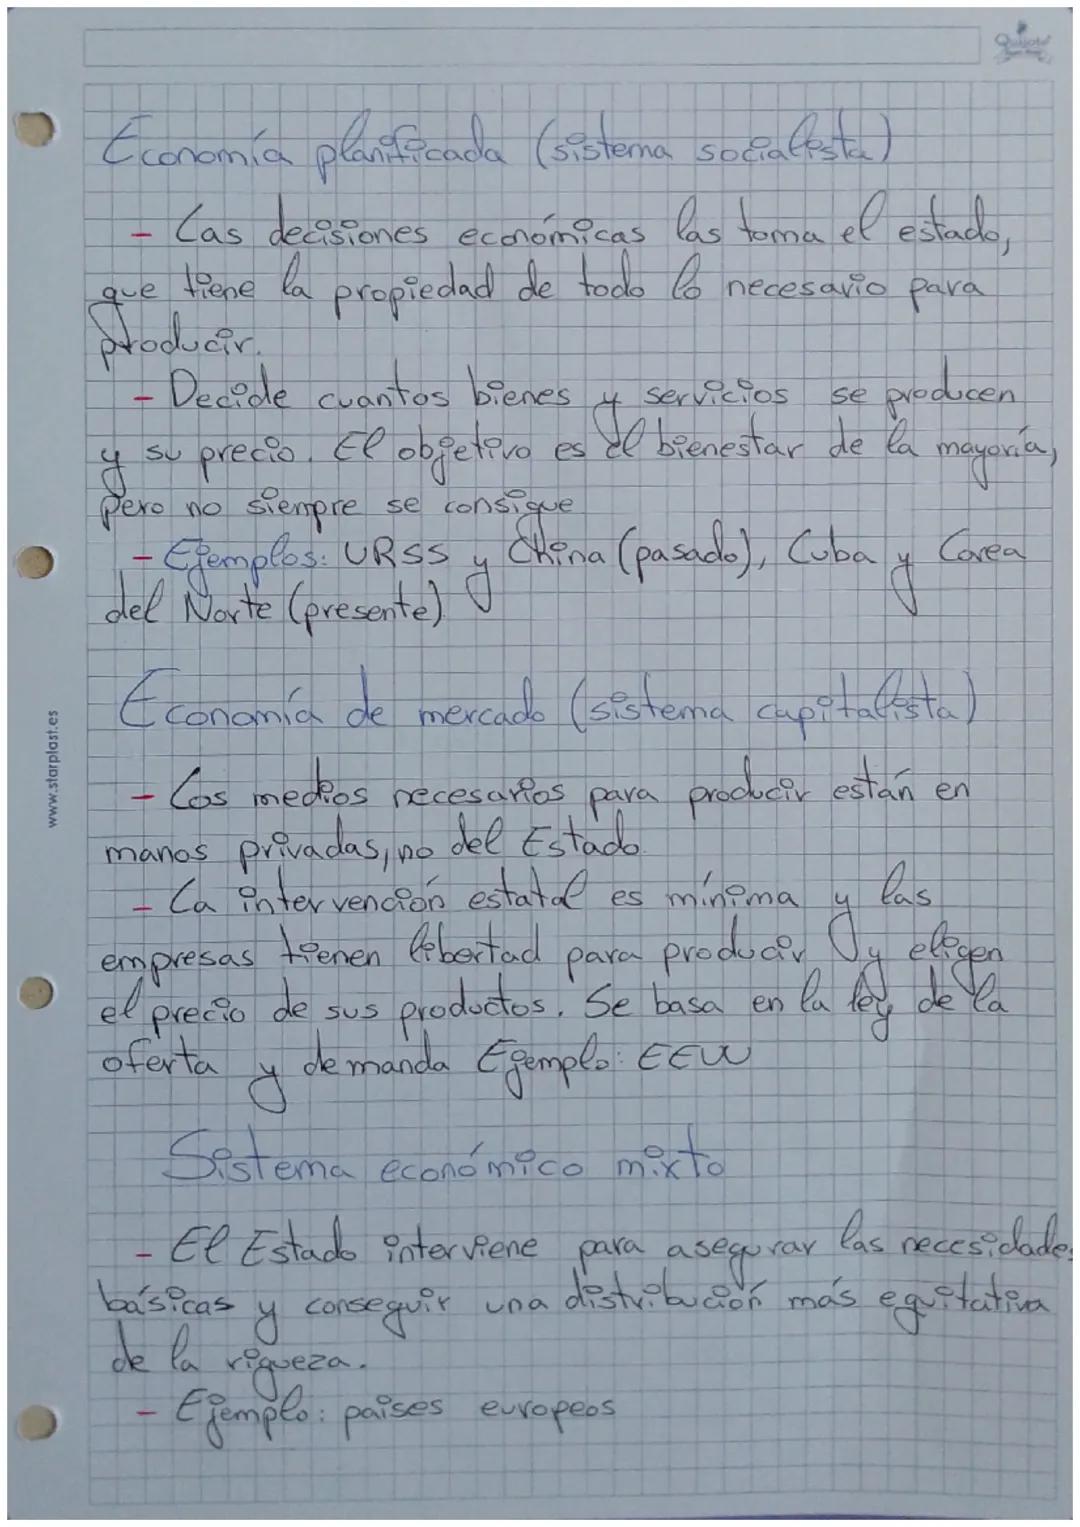 Quijote
Economía planificada (sistema socialista)
- Las decisiones económicas las toma el estado,
que tiene la propiedad de todo lo necesario para
producir.
- Decide cuantos bienes y servicios se producen
y su precio. El objetivo es el bienestar de la mayoría,
pero no siempre se consigue
- Ejemplos: URSS y China (pasado), Cuba y Corea
del Norte (presente)
Economía de mercado (sistema capitalista)
- Los medios necesarios para producir están en
manos privadas, no del Estado.
- La intervención estatal es mínima y las
empresas tienen libertad para producir y eligen
el precio de sus productos. Se basa en la ley de la
oferta y demanda Ejemplo: EEUU
Sistema económico mixto
- El Estado interviene para asegurar las necesidades
básicas y conseguir una distribución más equitativa
de la riqueza.
- Ejemplo: paises europeos
www.starplast.es